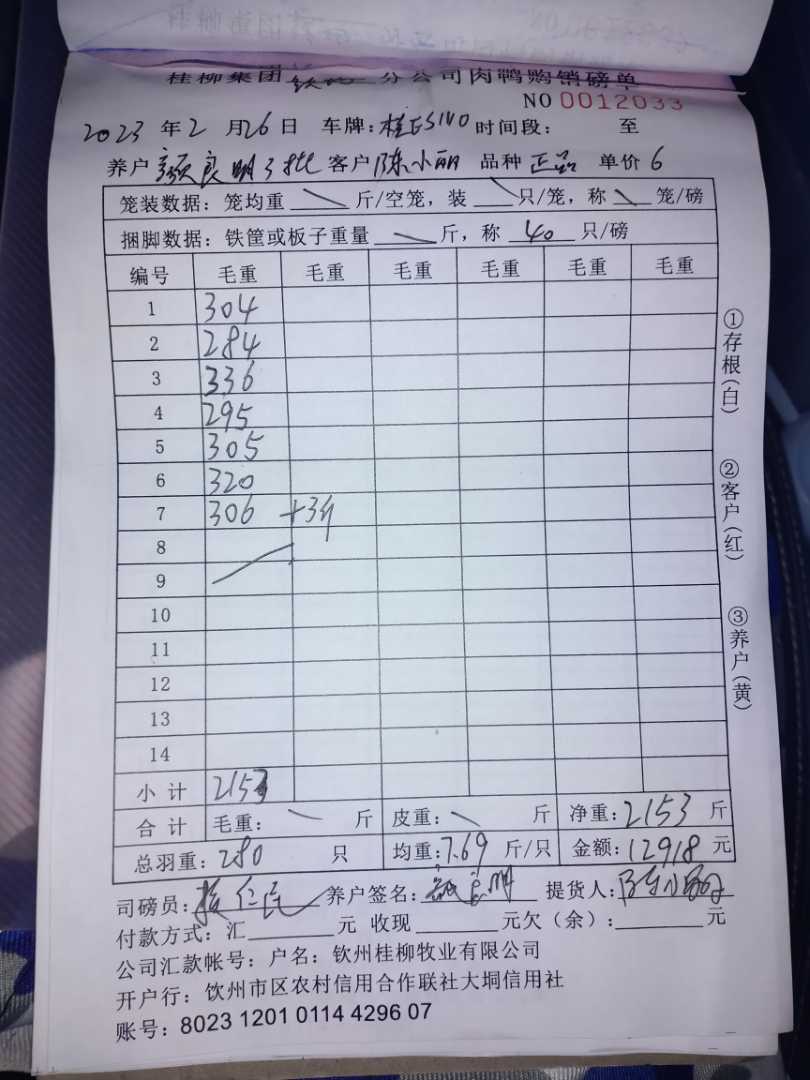 桂柳集团钦州分公司肉鸭购销磅单
NO 0012033
2023 年 2 月 26 日 车牌: 时间段: 至
养户 颜良明3批 客户 陈小丽 品种 正品 单价 6
笼装数据: 笼均重 斤/空笼, 装 只/笼, 称 笼/磅
捆脚数据: 铁筐或板子重量 斤, 称 40 只/磅
编号 毛重 毛重 毛重 毛重 毛重 毛重
1 304
2 284
3 336
4 295
5 305
6 320
7 306 +3斤
8
9
10
11
12
13
14
小计 2153
合计 毛重: 斤 皮重: 斤 净重: 2153 斤
总羽重: 280 只 均重: 7.69 斤/只 金额: 12918 元
司磅员: 养户签名: 提货人:
付款方式: 汇 元 收现 元欠(余): 元
公司汇款帐号: 户名: 钦州桂柳牧业有限公司
开户行: 饮州市区农村信用合作联社大垌信用社
账号: 8023 1201 0114 4296 07
①存根(白)
②客户(红)
③养户(黄)